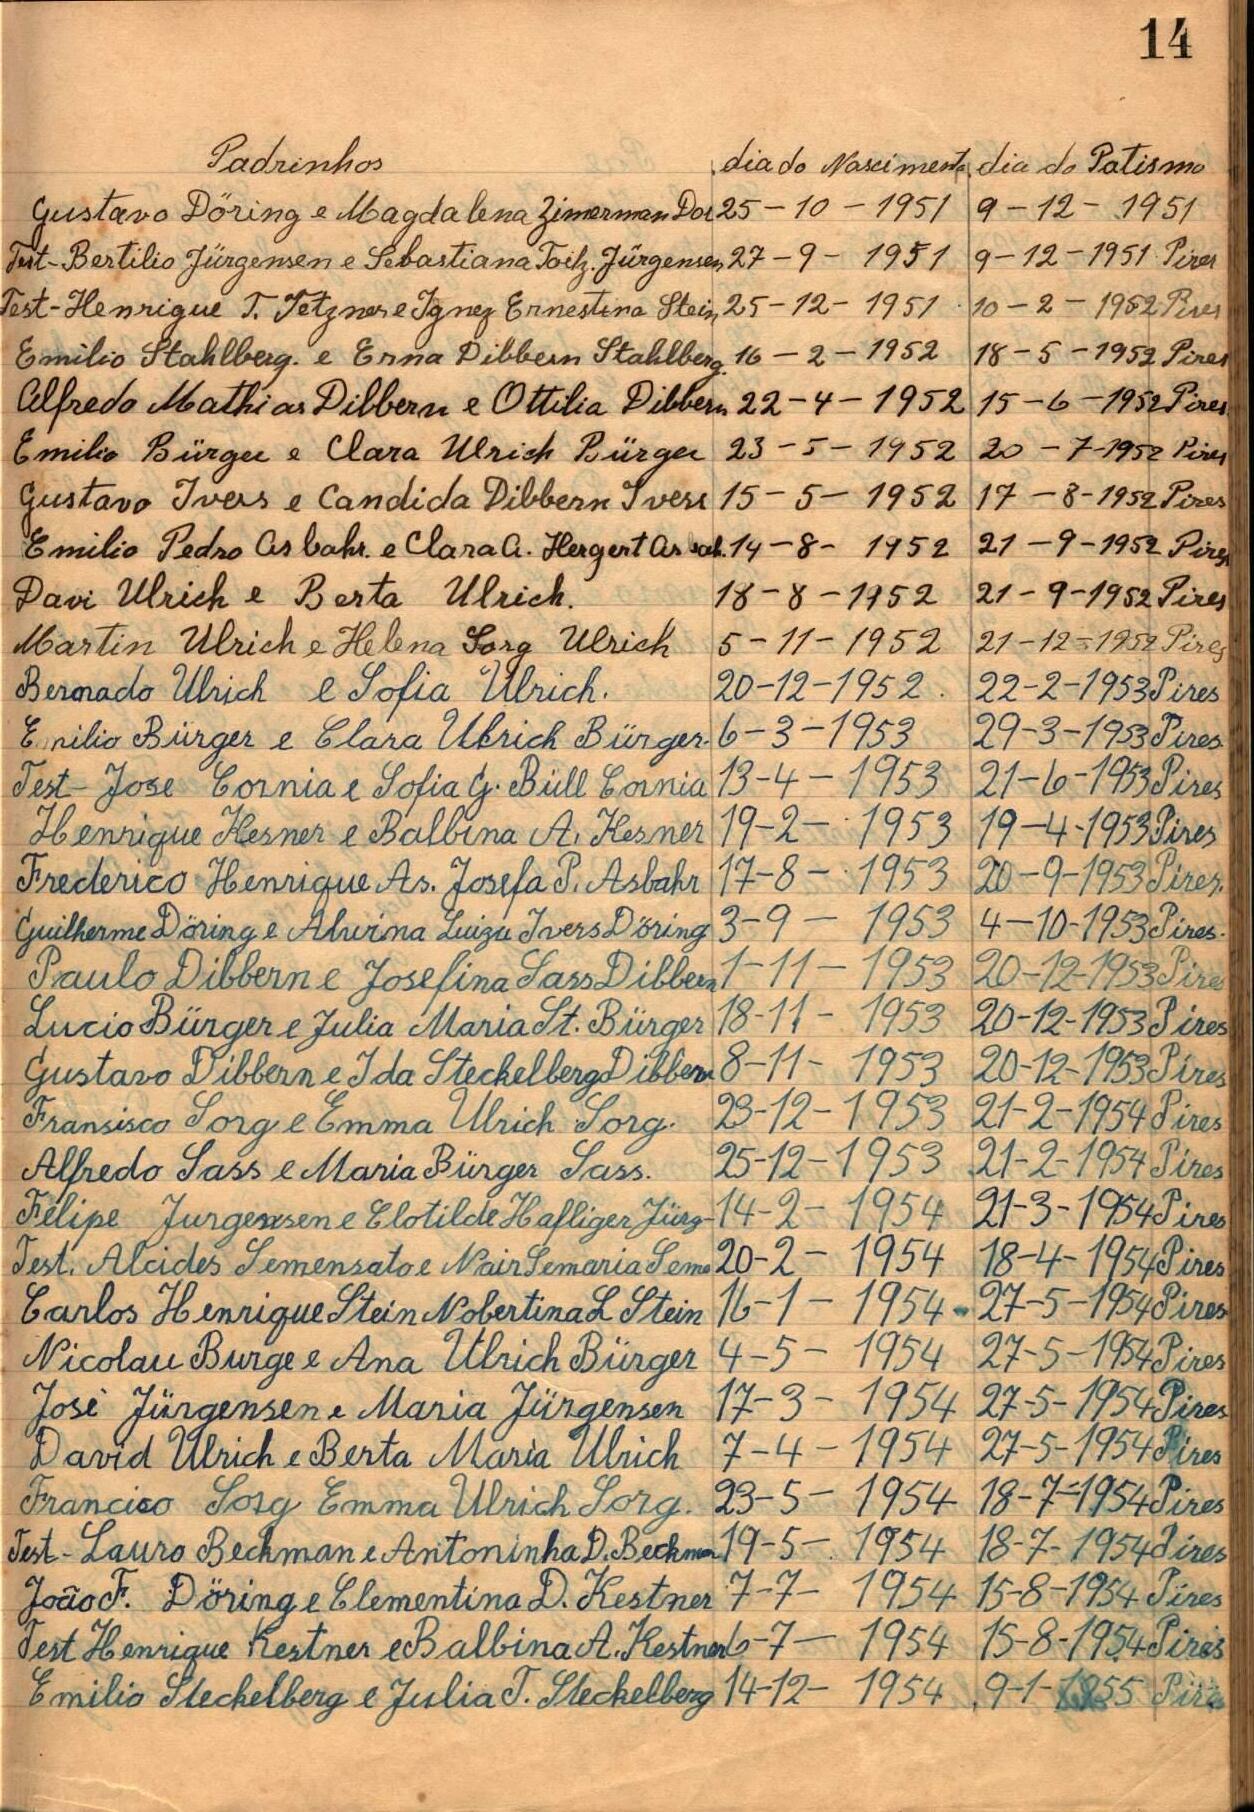 14
Padrinhos dia do Nascimento dia do Patismo
Gustavo Döring e Magdalena Zimerman Dor 25-10-1951 9-12-1951
Test-Bertilio Jürgensen e Sebastiana Jürgensen 27-9-1951 9-12-1951 Pires
Test-Henrique T. Tetzner e Ignez Ernestina Stein 25-12-1951 10-2-1952 Pires
Emilio Stahlberg. e Erna Dibbern Stahlberg. 16-2-1952 18-5-1952 Pires
Alfredo Mathias Dibbern e Ottilia Dibbern 22-4-1952 15-6-1952 Pires
Emilio Bürger e Clara Ulrich Bürger 23-5-1952 20-7-1952 Pires
Gustavo Ivers e Candida Dibbern Ivers 15-5-1952 17-8-1952 Pires
Emilio Pedro Asbahr. e Clara A. Hergert 14-8-1952 21-9-1952 Pires
Davi Ulrich e Berta Ulrich. 18-8-1952 21-9-1952 Pires
Martin Ulrich e Helena Sorg Ulrich 5-11-1952 21-12-1952 Pires
Bernado Ulrich e Sofia Ulrich. 20-12-1952. 22-2-1953 Pires
Emilio Bürger e Clara Ulrich Bürger. 6-3-1953 29-3-1953 Pires
Test-Jose Cornia e Sofia G. Büll Cornia 13-4-1953 21-6-1953 Pires
Henrique Kesner e Balbina A. Kesner 19-2-1953 19-4-1953 Pires
Frederico Henrique As. Josefa P. Asbahr 17-8-1953 20-9-1953 Pires.
Guilherme Döring e Alwina Luiza Ivers Döring 3-9-1953 4-10-1953 Pires.
Paulo Dibbern e Josefina Sass Dibbern 1-11-1953 20-12-1953 Pires
Lucio Bürger e Julia Maria St. Bürger 18-11-1953 20-12-1953 Pires
Gustavo Dibbern e Ida Steckelberg Dibbern 8-11-1953 20-12-1953 Pires
Fransisco Sorg e Emma Ulrich Sorg. 23-12-1953 21-2-1954 Pires
Alfredo Sass e Maria Bürger Sass. 25-12-1953 21-2-1954 Pires
Felipe Jurgensen e Clotilde Hafliger Jürg- 14-2-1954 21-3-1954 Pires
Test. Alcides Semensato e Nair Semaria Seme 20-2-1954 18-4-1954 Pires
Carlos Henrique Stein Nobertina L Stein 16-1-1954 27-5-1954 Pires
Nicolau Burge e Ana Ulrich Bürger 4-5-1954 27-5-1954 Pires
José Jürgensen e Maria Jürgensen 17-3-1954 27-5-1954 Pires
David Ulrich e Berta Maria Ulrich 7-4-1954 27-5-1954 Pires
Franciso Sorg Emma Ulrich Sorg. 23-5-1954 18-7-1954 Pires
Test-Lauro Beckman e Antoninha D. Beckman 19-5-1954 18-7-1954 Pires
João F. Döring e Clementina D. Kestner 7-7-1954 15-8-1954 Pires
Test Henrique Kestner e Balbina A. Kestner 6-7-1954 15-8-1954 Pires
Emilio Steckelberg e Julia T. Steckelberg 14-12-1954 9-1-1955 Pires